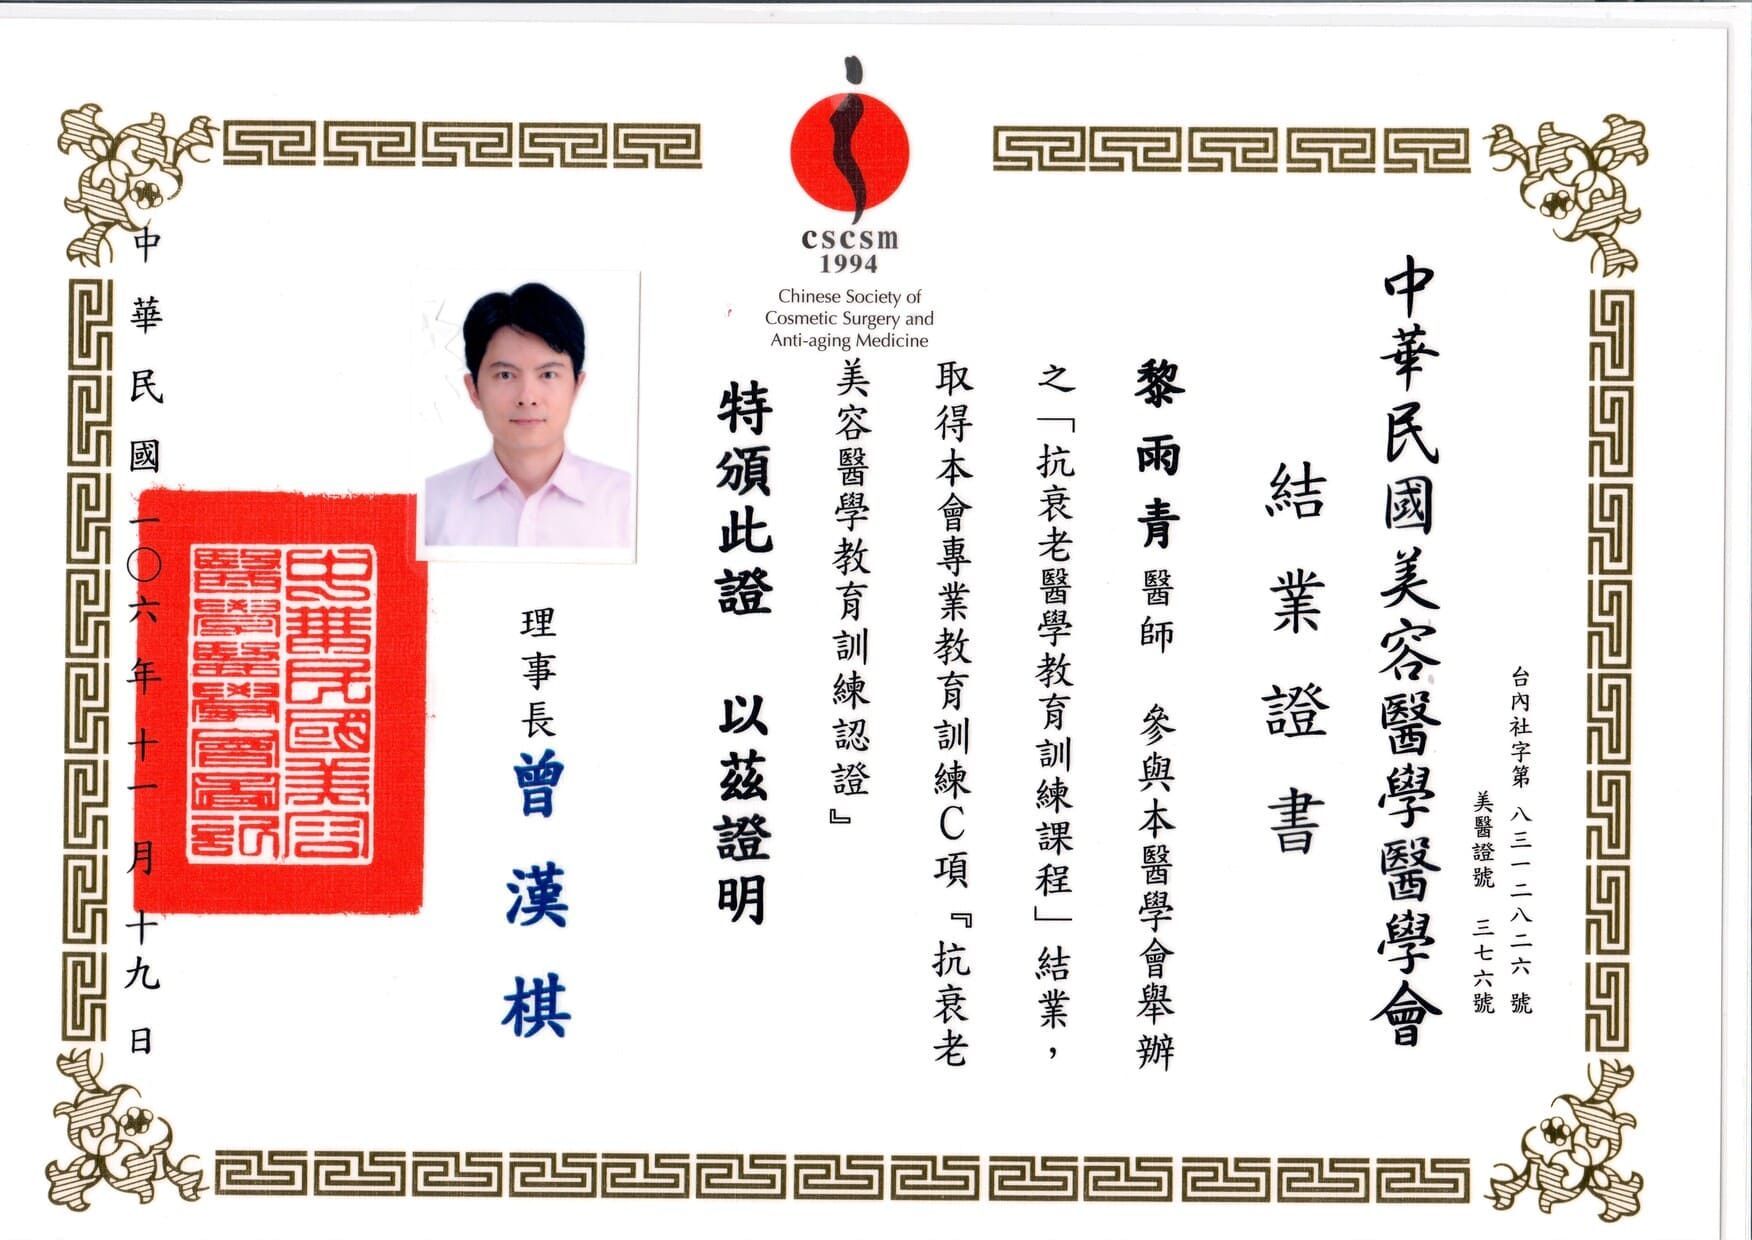 cscsm
1994
Chinese Society of
Cosmetic Surgery and
Anti-aging Medicine
台內社字第八三一二八二六號
美醫證號 三七六號
中華民國美容醫學醫學會
結業證書
黎雨青醫師 參與本醫學會舉辦
之「抗衰老醫學教育訓練課程」結業，
取得本會專業教育訓練C項『抗衰老
美容醫學教育訓練認證』
特頒此證 以茲證明
理事長曾漢棋
中華民國美容
醫學醫學會圖記
中華民國一〇六年十一月十九日